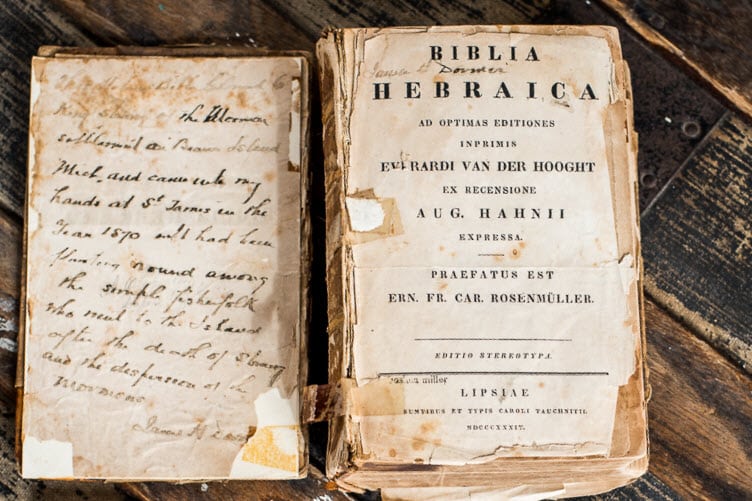 Bible
King Strang of the Mormon
settlement on Beaver Island
Mich. and came into my
hands at St James in the
Year 1870 it had been
floating round among
the simple fisherfolk
who went to the Island
after the death of Strang
and the dispersion of the
Mormons.
James H
BIBLIA
HEBRAICA
AD OPTIMAS EDITIONES
INPRIMIS
EVERARDI VAN DER HOOGHT
EX RECENSIONE
AUG. HAHNII
EXPRESSA.
PRAEFATUS EST
ERN. FR. CAR. ROSENMÜLLER.
EDITIO STEREOTYPA.
miller
LIPSIAE
SUMPTIBUS ET TYPIS CAROLI TAUCHNITII.